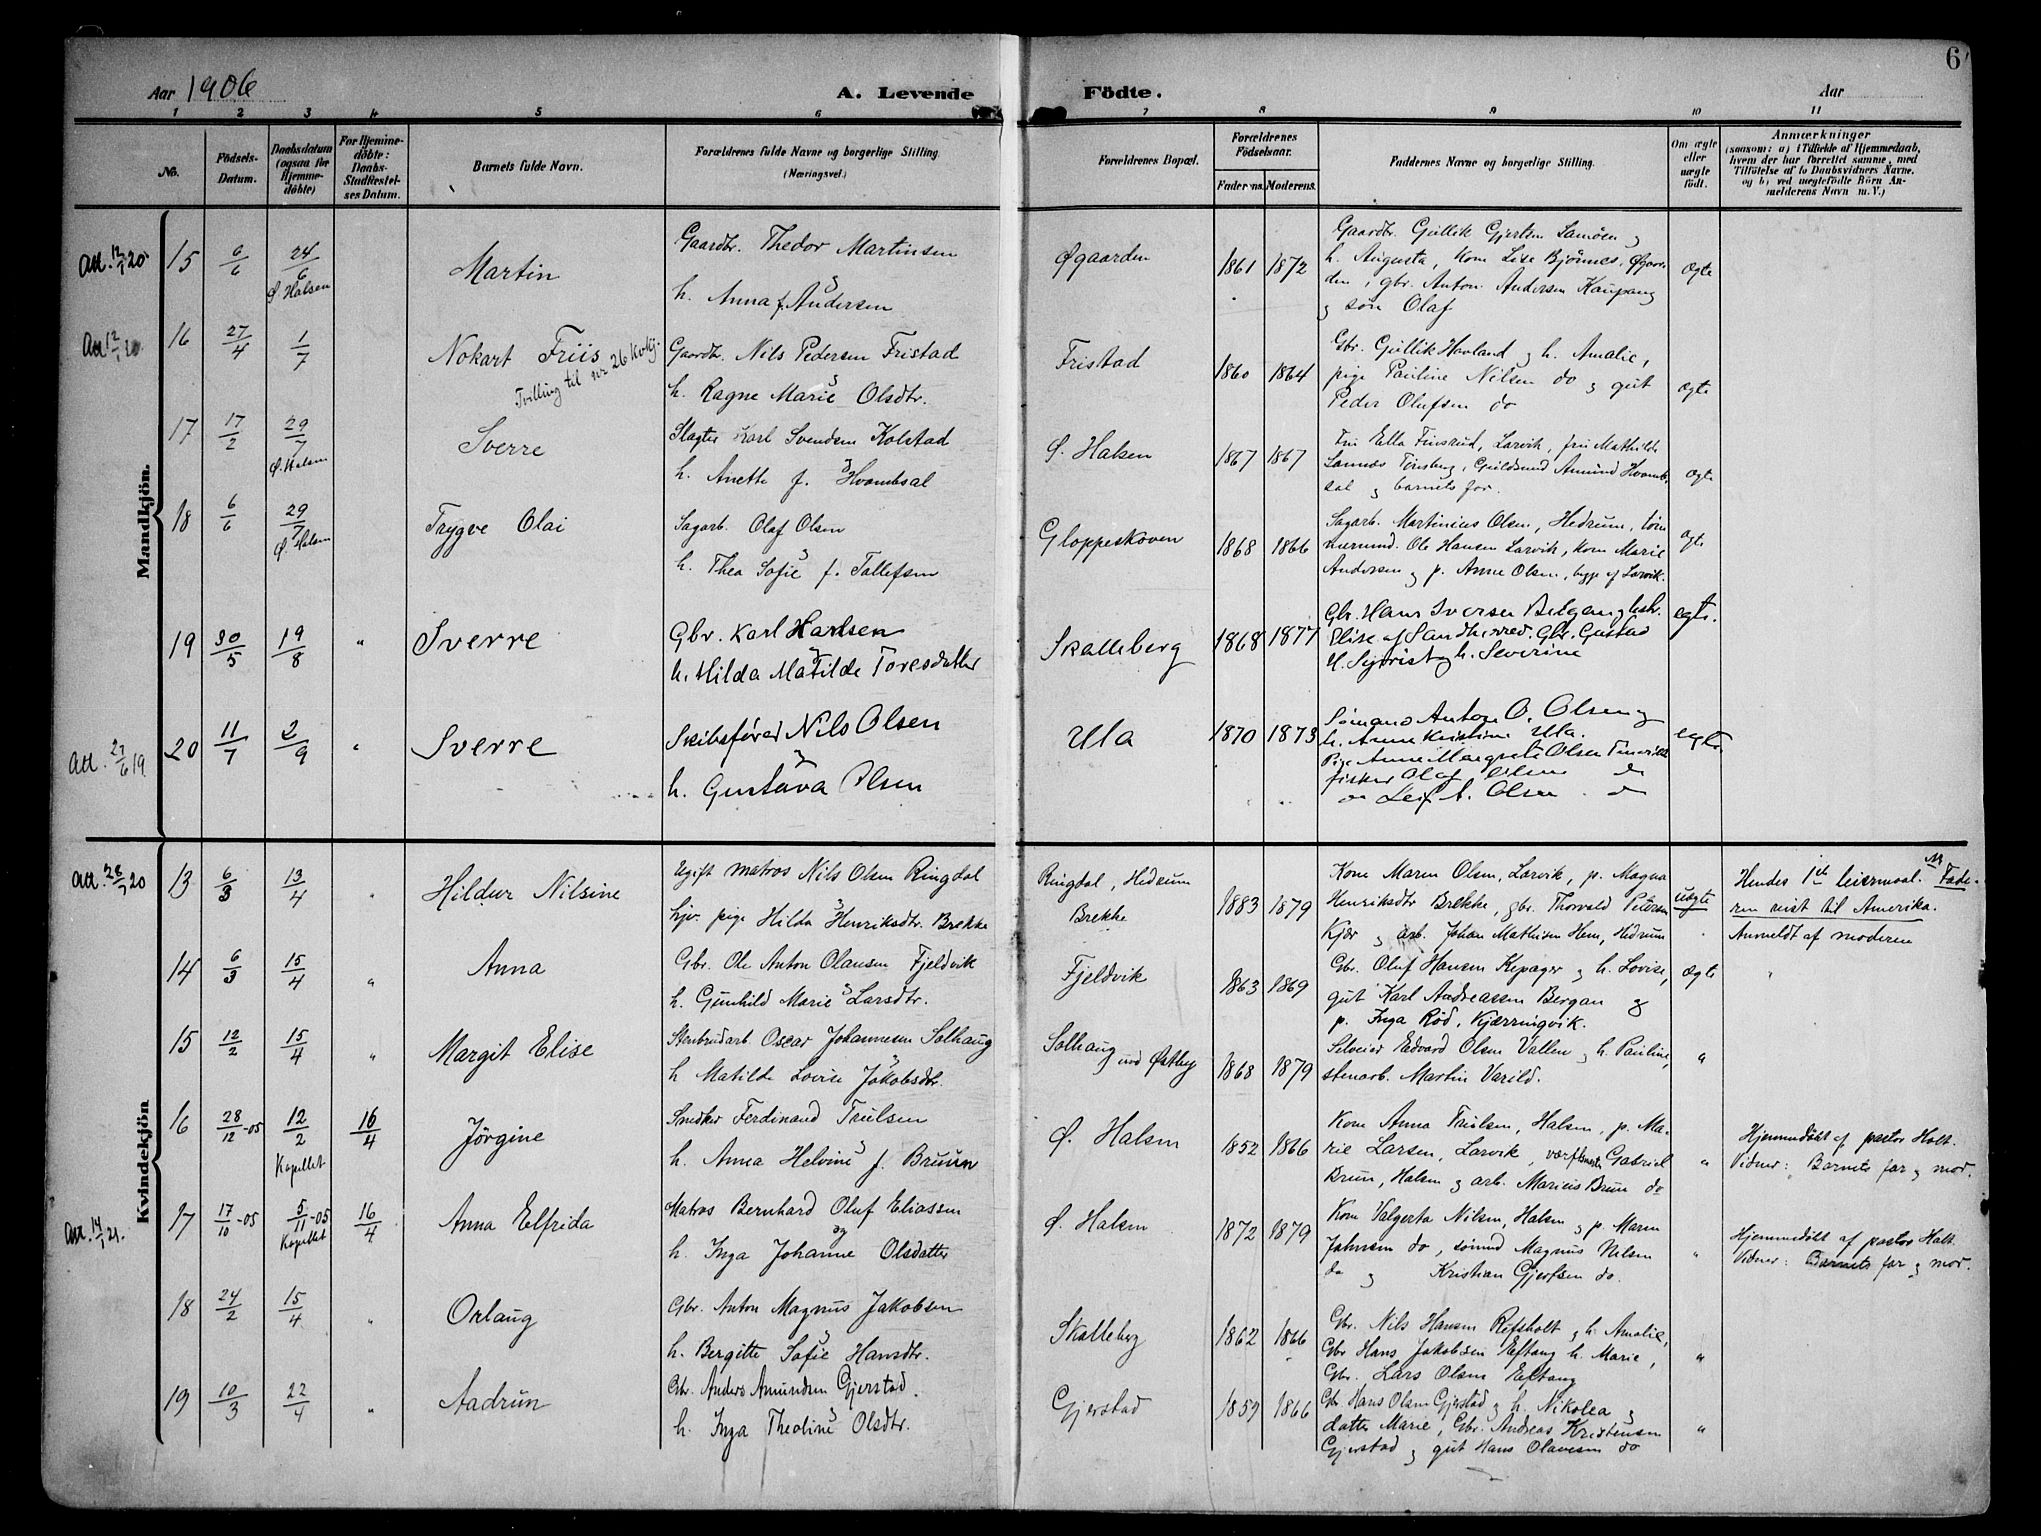 6
Aar 1906
A. Levende
Födte.
Aar
1 2 3 4 5 6 7 8 9 10 11
No.
Födsels-Datum.
Daabsdatum (ogsaa for Hjemmedöbte)
For Hjemmedöbte: Daabs-Stadfestelses Datum.
Barnets fulde Navn.
Forældrenes fulde Navne og borgerlige Stilling (Næringsvei.)
Forældrenes Bopæl.
Forældrenes Födselsaar.
Faderens. Moderens.
Faddernes Navne og borgerlige Stilling.
Om ægte eller uægte født.
Anmærkninger
(saasom: a) i Tilfælde af Hjemmedaab, hvem der har forrettet samme, med Tilføielse af to Daabsvidners Navne. og b) ved uægtefødte Börn Anmelderens Navn m. V.)
Mandkjön.
Att. 12/1 20. 15 6/6 24/6 Ø. Halsen Martin
Gaardbr. Thedor Martinsen
h. Anna f. Andersen
Øgaarden 1861 1872
Gaardbr. Gullik Gjertsen Samöen og
h. Augusta, Kone Lise Bjönnes, Øgaar-
den, gbr. Anton Andersen Kaupang
og sön Olaf
ægte
Att 12/1 20. 16 27/4 1/7 Nokart Friis
Tvilling til nr 26 Kvkj.
Gaardbr. Nils Pedersen Fristad
og
h. Ragne Marie Olsdtr.
Fristad 1860 1864
Gbr. Gullik Havland og h. Amalie,
pige Pauline Nilsen do og gut
Peder Olufsen do
ægte
17 17/2 29/7 Ø. Halsen Sverre
Slagter Karl Svendsen Kolstad
og
h. Anette f. Hvambsal
Ø. Halsen 1867 1867
Fru Ella Finsrud, Larvik, fru Mathilde
Sannæs Tönsberg, Guldsmed Amund Hvamb-
sal og barnets far.
ægte
18 6/6 29/7 Ø. Halsen Trygve Olai
Sagarb. Olaf Olsen
og
h. Thea Sofie f. Tallefsen
Gloppeskoven 1868 1866
Sagarb. Martinius Olsen, Hedrum, töm-
mermand. Ole Hansen Larvik, Kone Marie
Andersen og p. Anne Olsen, begge af Larvik.
ægte
19 30/5 19/8 " Sverre
Gbr. Karl Karlsen
og
h. Hilda Matilde Toresdatter
Skalleberg 1868 1877
Gbr. Hans Iversen
Elise af Sandherred. Gbr. Gustad
h. Severine
egte.
Att. 27/6 19. 20 11/7 2/9 " Sverre
Skibsförer Nils Olsen
og
h. Gustava Olsen
Ula 1870 1873
Sömand Anton O. Olsen og
h. Anne Kristine Ula.
Pige Anne Margrete Olsen
fisker Olaf Olsen do
do Leif A. Olsen do
egte
Kvindekjön
Att. 28/7 20 13 6/3 13/4 " Hildur Nilsine
Ugift matros Nils Olsen Ringdal
og
pige Hilda Henriksdtr. Brekke
Ringdal, Hedrum
Brekke
1883 1879
Kone Maren Olsen, Larvik, p. Magna
Henriksdtr Brekke, gbr. Thorvald Petersen
Kjær og arb. Johan Mathisen Hem, Hedrum
uægte
Hendes 1ste leiermaal. NB Fade-
ren reist til Amerika.
Anmeldt af moderen
14 6/3 15/4 " Anna
Gbr. Ole Anton Olausen Fjeldvik
og
h. Gunhild Marie Larsdtr.
Fjeldvik 1863 1869
Gbr. Oluf Hansen Kepager og h. Lovise,
gut Karl Andreassen Bergan og
p. Inga Rød, Kjærringvik.
ægte "
15 12/2 15/4 " Margit Elise
Stenbrudarb Oscar Johannesen Solhaug
og
h Matilde Lovise Jakobsdtr.
Solhaug und Østby 1868 1879
Selveier Edvard Olsen Vallen og h. Pauline,
stenarb. Martin Varild.
"
16 28/12-05 12/2 Kapellet 16/4 Jörgine
Snedker Ferdinand Trulsen
og
h. Anna Helvine f. Bruun
Ø. Halsen 1852 1866
Kone Anna Trulsen, Halsen, p. Ma-
rie Larsen, Larvik, værftsarb Gabriel
Brun, Halsen og arb. Marius Brun do
"
Hjemmedöbt af pastor Holt.
Vidner: Barnets far og mor.
Att. 14/1 21. 17 17/10-05 5/11-05 Kapellet 16/4 Anna Elfrida
Matros Bernhard Oluf Eliassen
og
h. Inga Johanne Olsdatter
Ø. Halsen 1872 1879
Kone Valgerta Nilsen, Halsen og p. Maren
Johnsen do, sömand Magnus Nilsen
do og Kristian Gjertsen do.
"
Hjemmedöbt af pastor Holt.
Vidner: Barnets far og mor.
18 24/2 15/4 " Orlaug
Gbr. Anton Magnus Jakobsen
og
h. Bergitte Sofie Hansdtr.
Skalleberg 1862 1866
Gbr. Nils Hansen Refsholt og h. Amalie,
Gbr Hans Jakobsen Eftang h. Marie,
Gbr. Lars Olsen Eftang
"
19 10/3 22/4 " Aadrun
Gbr. Anders Amundsen Gjerstad.
og
h. Inga Theoline Olsdtr.
Gjerstad 1859 1866
Gbr Hans Olsen Gjerstad og h. Nikolea og
datter Marie, Gbr. Andreas Kristensen
Gjerstad og gut Hans Olavesen do
"